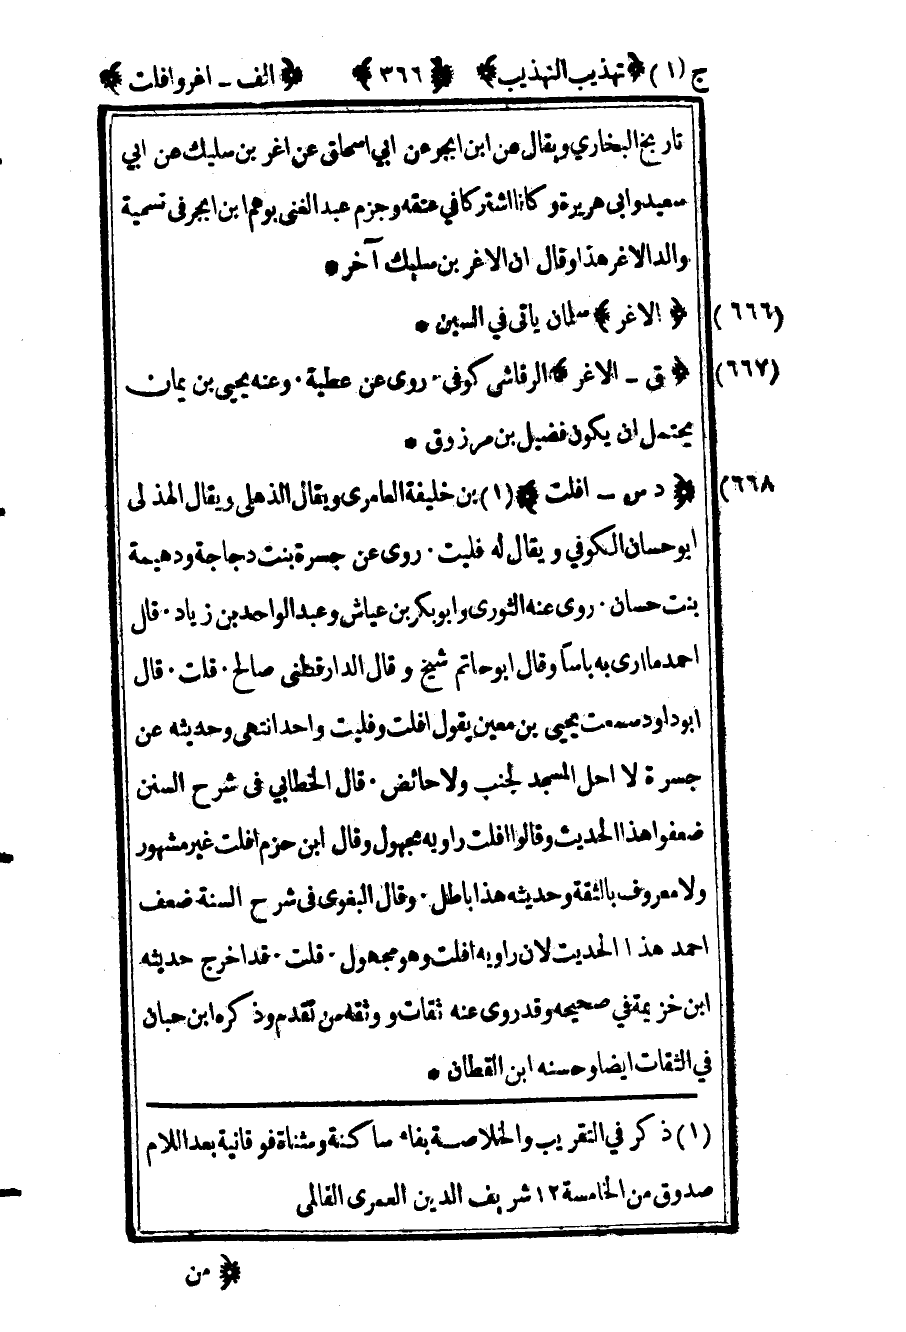 ج (١) ﴿تهذيب التهذيب﴾ ﴿٣٦٦﴾ ﴿الف ـ اغر وافلت﴾
تاريخ البخاري ويقال عن ابن ابجر عن ابي اسحاق عن اغر بن سليك عن ابي
سعيد وابى هريرة وكانا اشتركا في عتقه وجزم عبد الغنى بوهم ابن ابجر فى تسمية
والد الاغر هذا وقال ان الاغر بن سليك آخر *
(٦٦٦) ﴿الاغر﴾ سلمان ياتى في السين *
(٦٦٧) ﴿ق ـ الاغر﴾ الرقاشى كوفي ٠ روى عن عطية ٠ وعنه يحيى بن يمان
يحتمل ان يكون فضيل بن مرزوق *
(٦٦٨) ﴿د س ـ افلت﴾ (١) بن خليفة العامرى ويقال الذهلى ويقال الهذلى
ابو حسان الكوفي ويقال له فليت ٠ روى عن جسرة بنت دجاجة ودهيمة
بنت حسان ٠ روى عنه الثورى وابو بكر بن عياش وعبد الواحد بن زياد ٠ قال
احمد ما ارى به باسآ وقال ابو حاتم شيخ وقال الدارقطنى صالح ٠ قلت ٠ قال
ابو داود سمعت يحيى بن معين يقول افلت وفليت واحد انتهى وحديثه عن
جسرة لا احل المسجد لجنب ولا حائض ٠ قال الخطابي فى شرح السنن
ضعفوا هذا الحديث وقالوا افلت راويه مجهول وقال ابن حزم افلت غير مشهور
ولا معروف بالثقة وحديثه هذا باطل ٠ وقال البغوى فى شرح السنة ضعف
احمد هذا الحديث لان راويه افلت وهو مجهول ٠ قلت ٠ قد اخرج حديثه
ابن خزيمة في صحيحه وقد روى عنه ثقات ووثقه من تقدم وذكره ابن حبان
في الثقات ايضا وحسنه ابن القطان *
(١) ذكر في التقريب والخلاصة بفاء ساكنة ومثناة فوقانية بعد اللام
صدوق من الخامسة ١٢ شريف الدين العمرى القالمى
﴿من